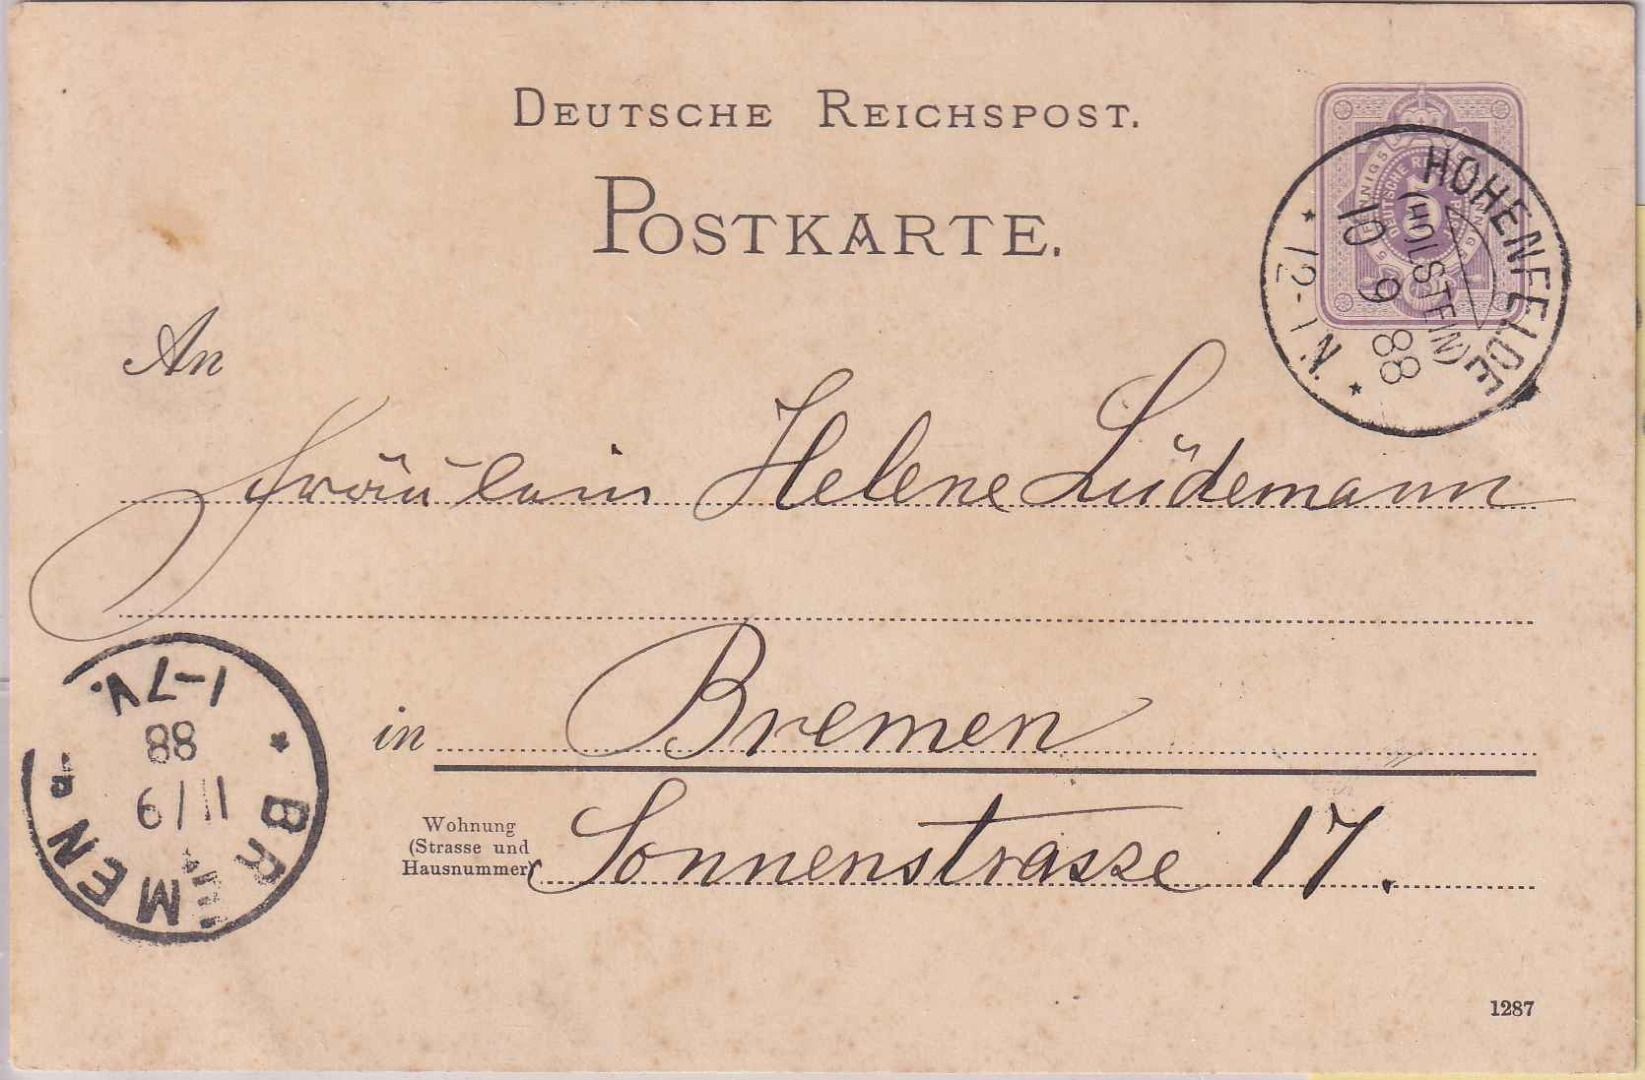 DEUTSCHE REICHSPOST.
POSTKARTE.
HOHENFELDE
(HOLSTEIN)
10 9 88
* 12-1 N. *
An
Fräulein Helene Lüdemann
in Bremen
Wohnung
(Strasse und
Hausnummer)
Sonnenstrasse 17.
* BREMEN
11/9
88
1-7V.
1287